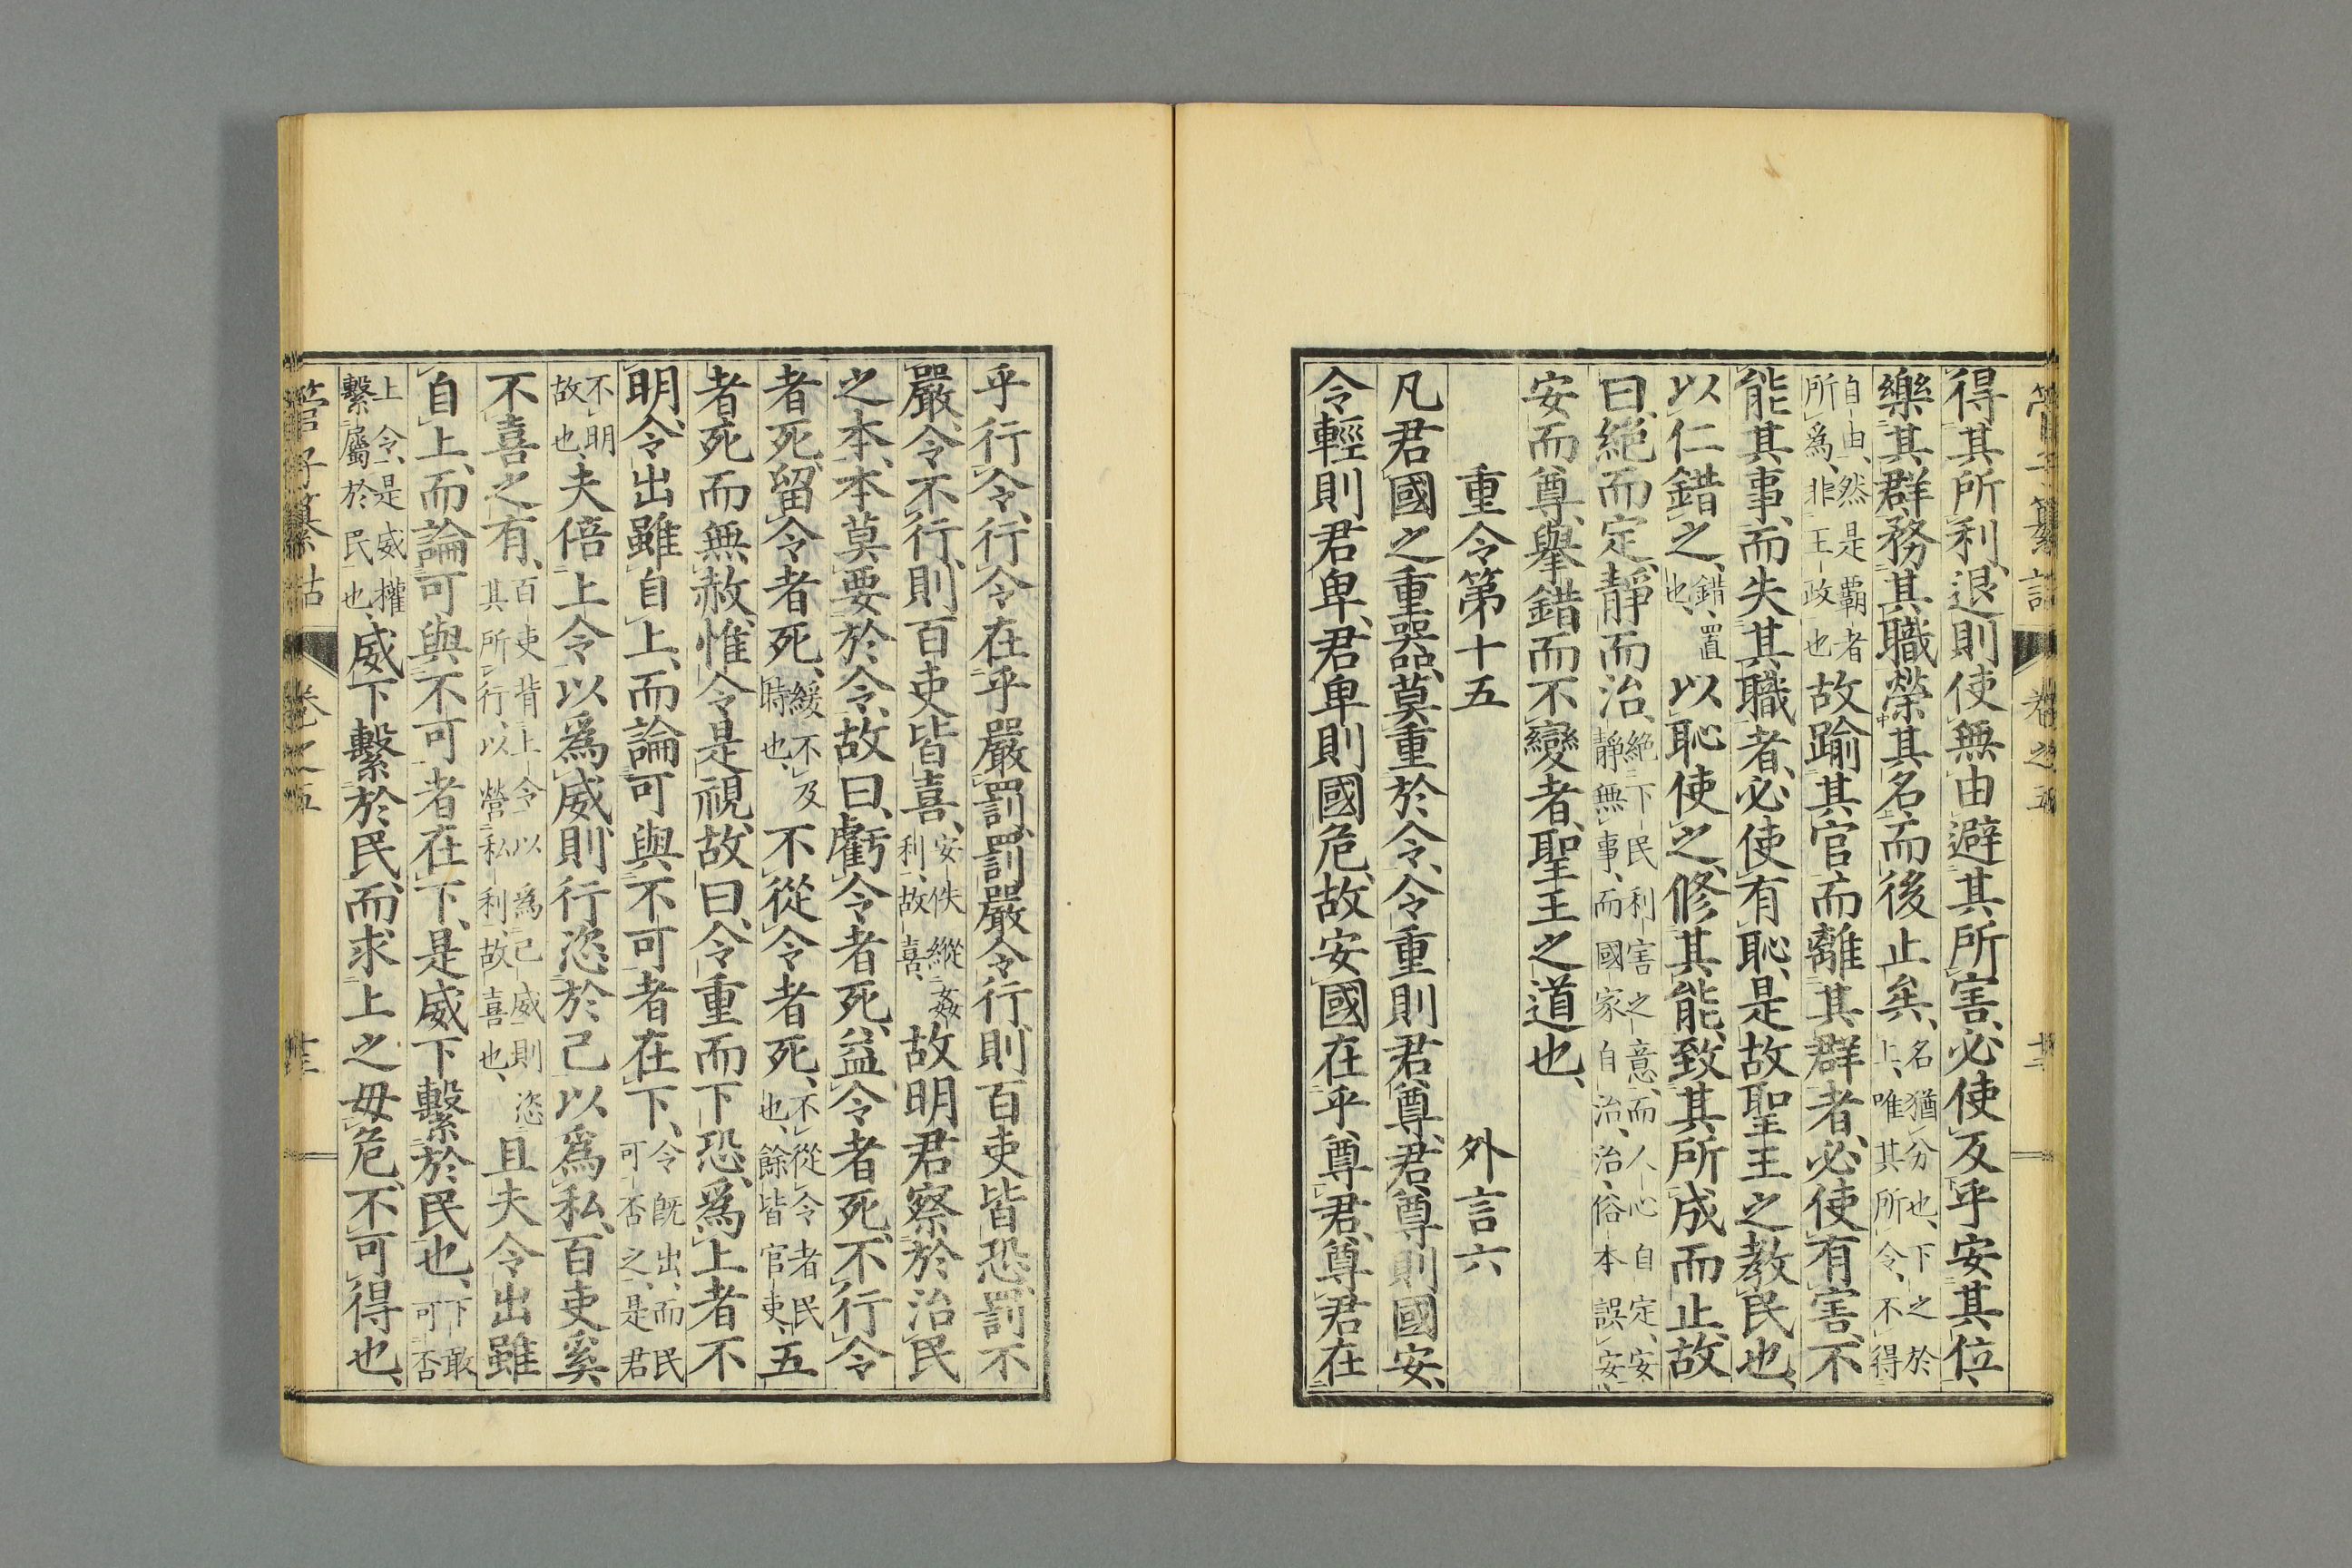 得其所利、退則使無由避其所害、必使反乎安其位、
樂其群務其職榮其名、而後止矣、名猶分也、下之於上、唯其所令、不得
自由、然是覇者所爲、非王政也故踰其官而離其群者、必使有害、不
能其事、而失其職者、必使有恥、是故聖王之教民也、
以仁錯之、錯、置也、以恥使之、修其能、致其所成而止、故
曰、絶而定、靜而治、絶下民利害之意、而人心自定、安靜無事、而國家自治、治、俗本誤安、
安而尊、擧錯而不變者、聖王之道也、
重令第十五
外言六
凡君國之重器、莫重於令、令重則君尊、君尊則國安、
令輕則君卑、君卑則國危、故安國在乎尊君、尊君在
乎行令、行令在乎嚴罰、罰嚴令行、則百吏皆恐、罰不
嚴、令不行、則百吏皆喜、安佚縱姦利、故喜、故明君察於治民
之本、本莫要於令、故曰、虧令者死、益令者死、不行令
者死、留令者死、緩不及時也、不從令者死、不從令者民也、餘皆官吏、五
者死而無赦、惟令是視、故曰、令重而下恐、爲上者不
明、令出雖自上、而論可與不可者在下、令既出、而民可否之、是君
不明故也、夫倍上令以爲威、則行恣於己以爲私、百吏奚
不喜之有、百吏背上令以爲己威則恣其所行、以營私利、故喜也、且夫令出雖
自上、而論可與不可者在下、是威下繫於民也、下敢可否
上令、是威權繫屬於民也、威下繫於民、而求上之毋危、不可得也、
管子纂詁
卷之五